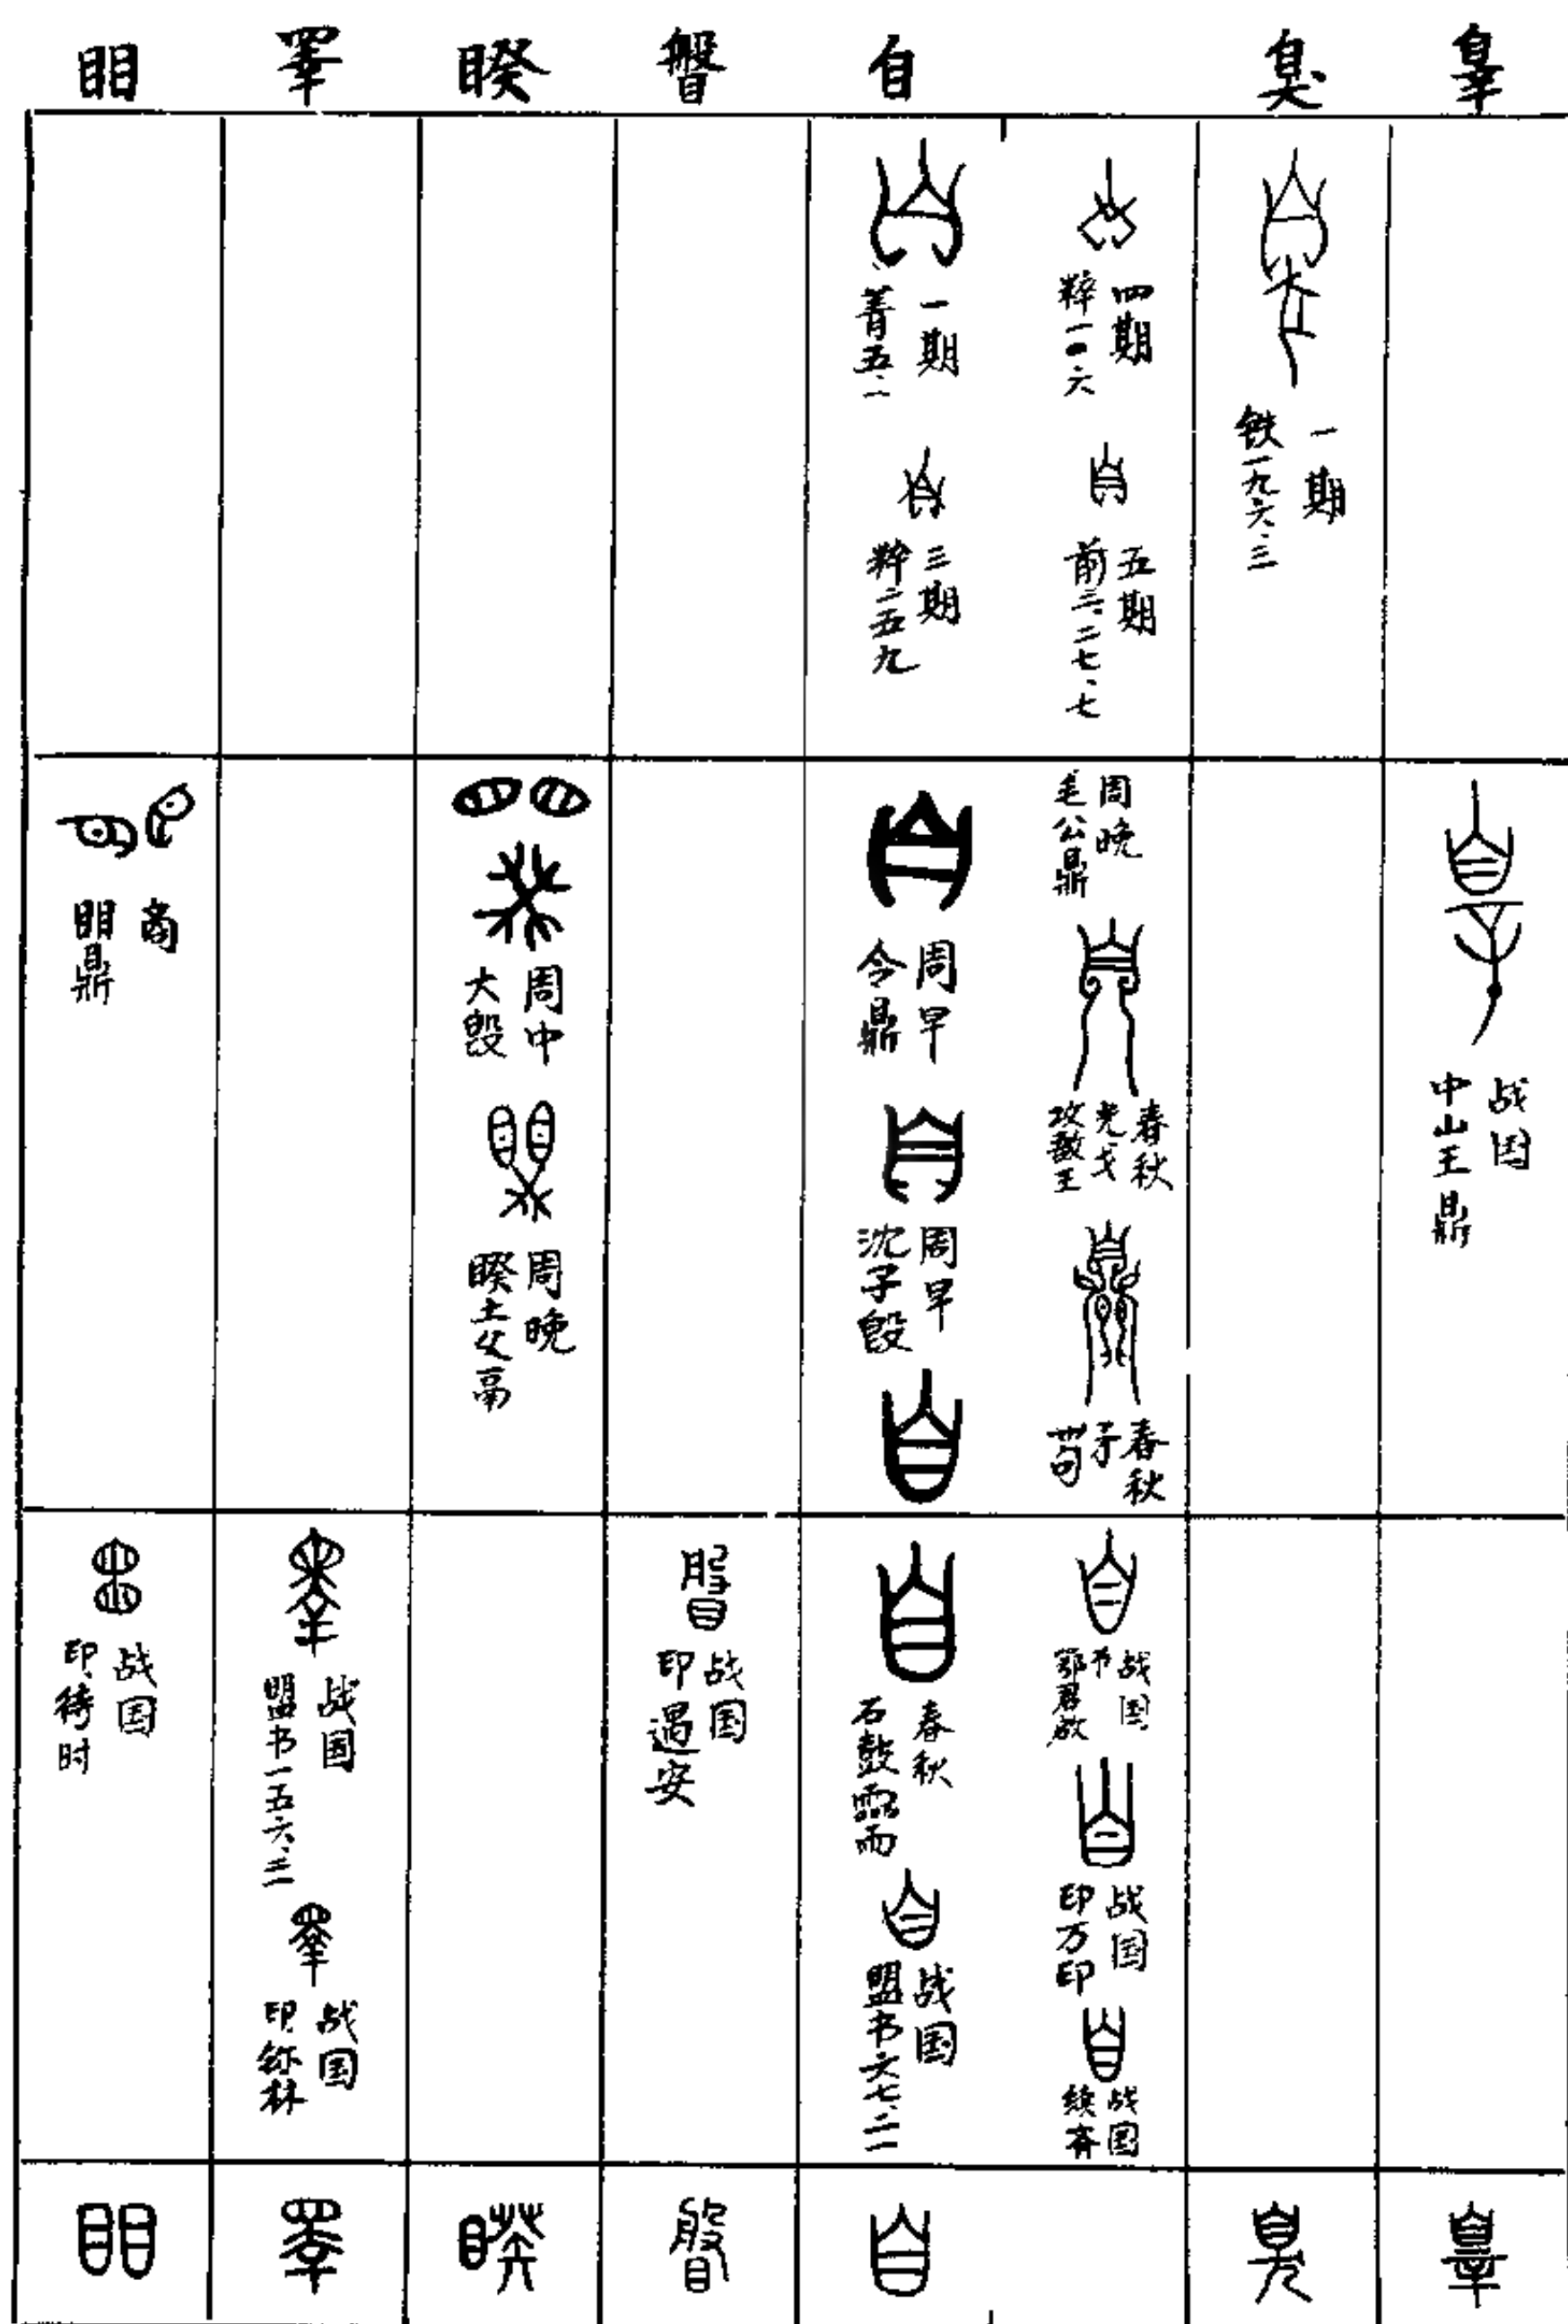 䀠 睪 睽 瞥 自 臭 辠
一期
菁五·二
三期
粹二五九
四期
粹一〇六
五期
前三·二七·七
一期
铁一九六·三
商
䀠鼎
周中
大𣪘
周晚
睽土父鬲
周早
令鼎
周早
沈子𣪘
周晚
毛公鼎
春秋
攻敔王
光戈
春秋
战国
中山王鼎
战国
印待时
战国
盟书一五六·三
战国
战国
春秋
石鼓霝雨
战国
盟书六七·二
战国
鄂君启节
战国
印万印
战国
䀠 睪 睽 自 臭 辠